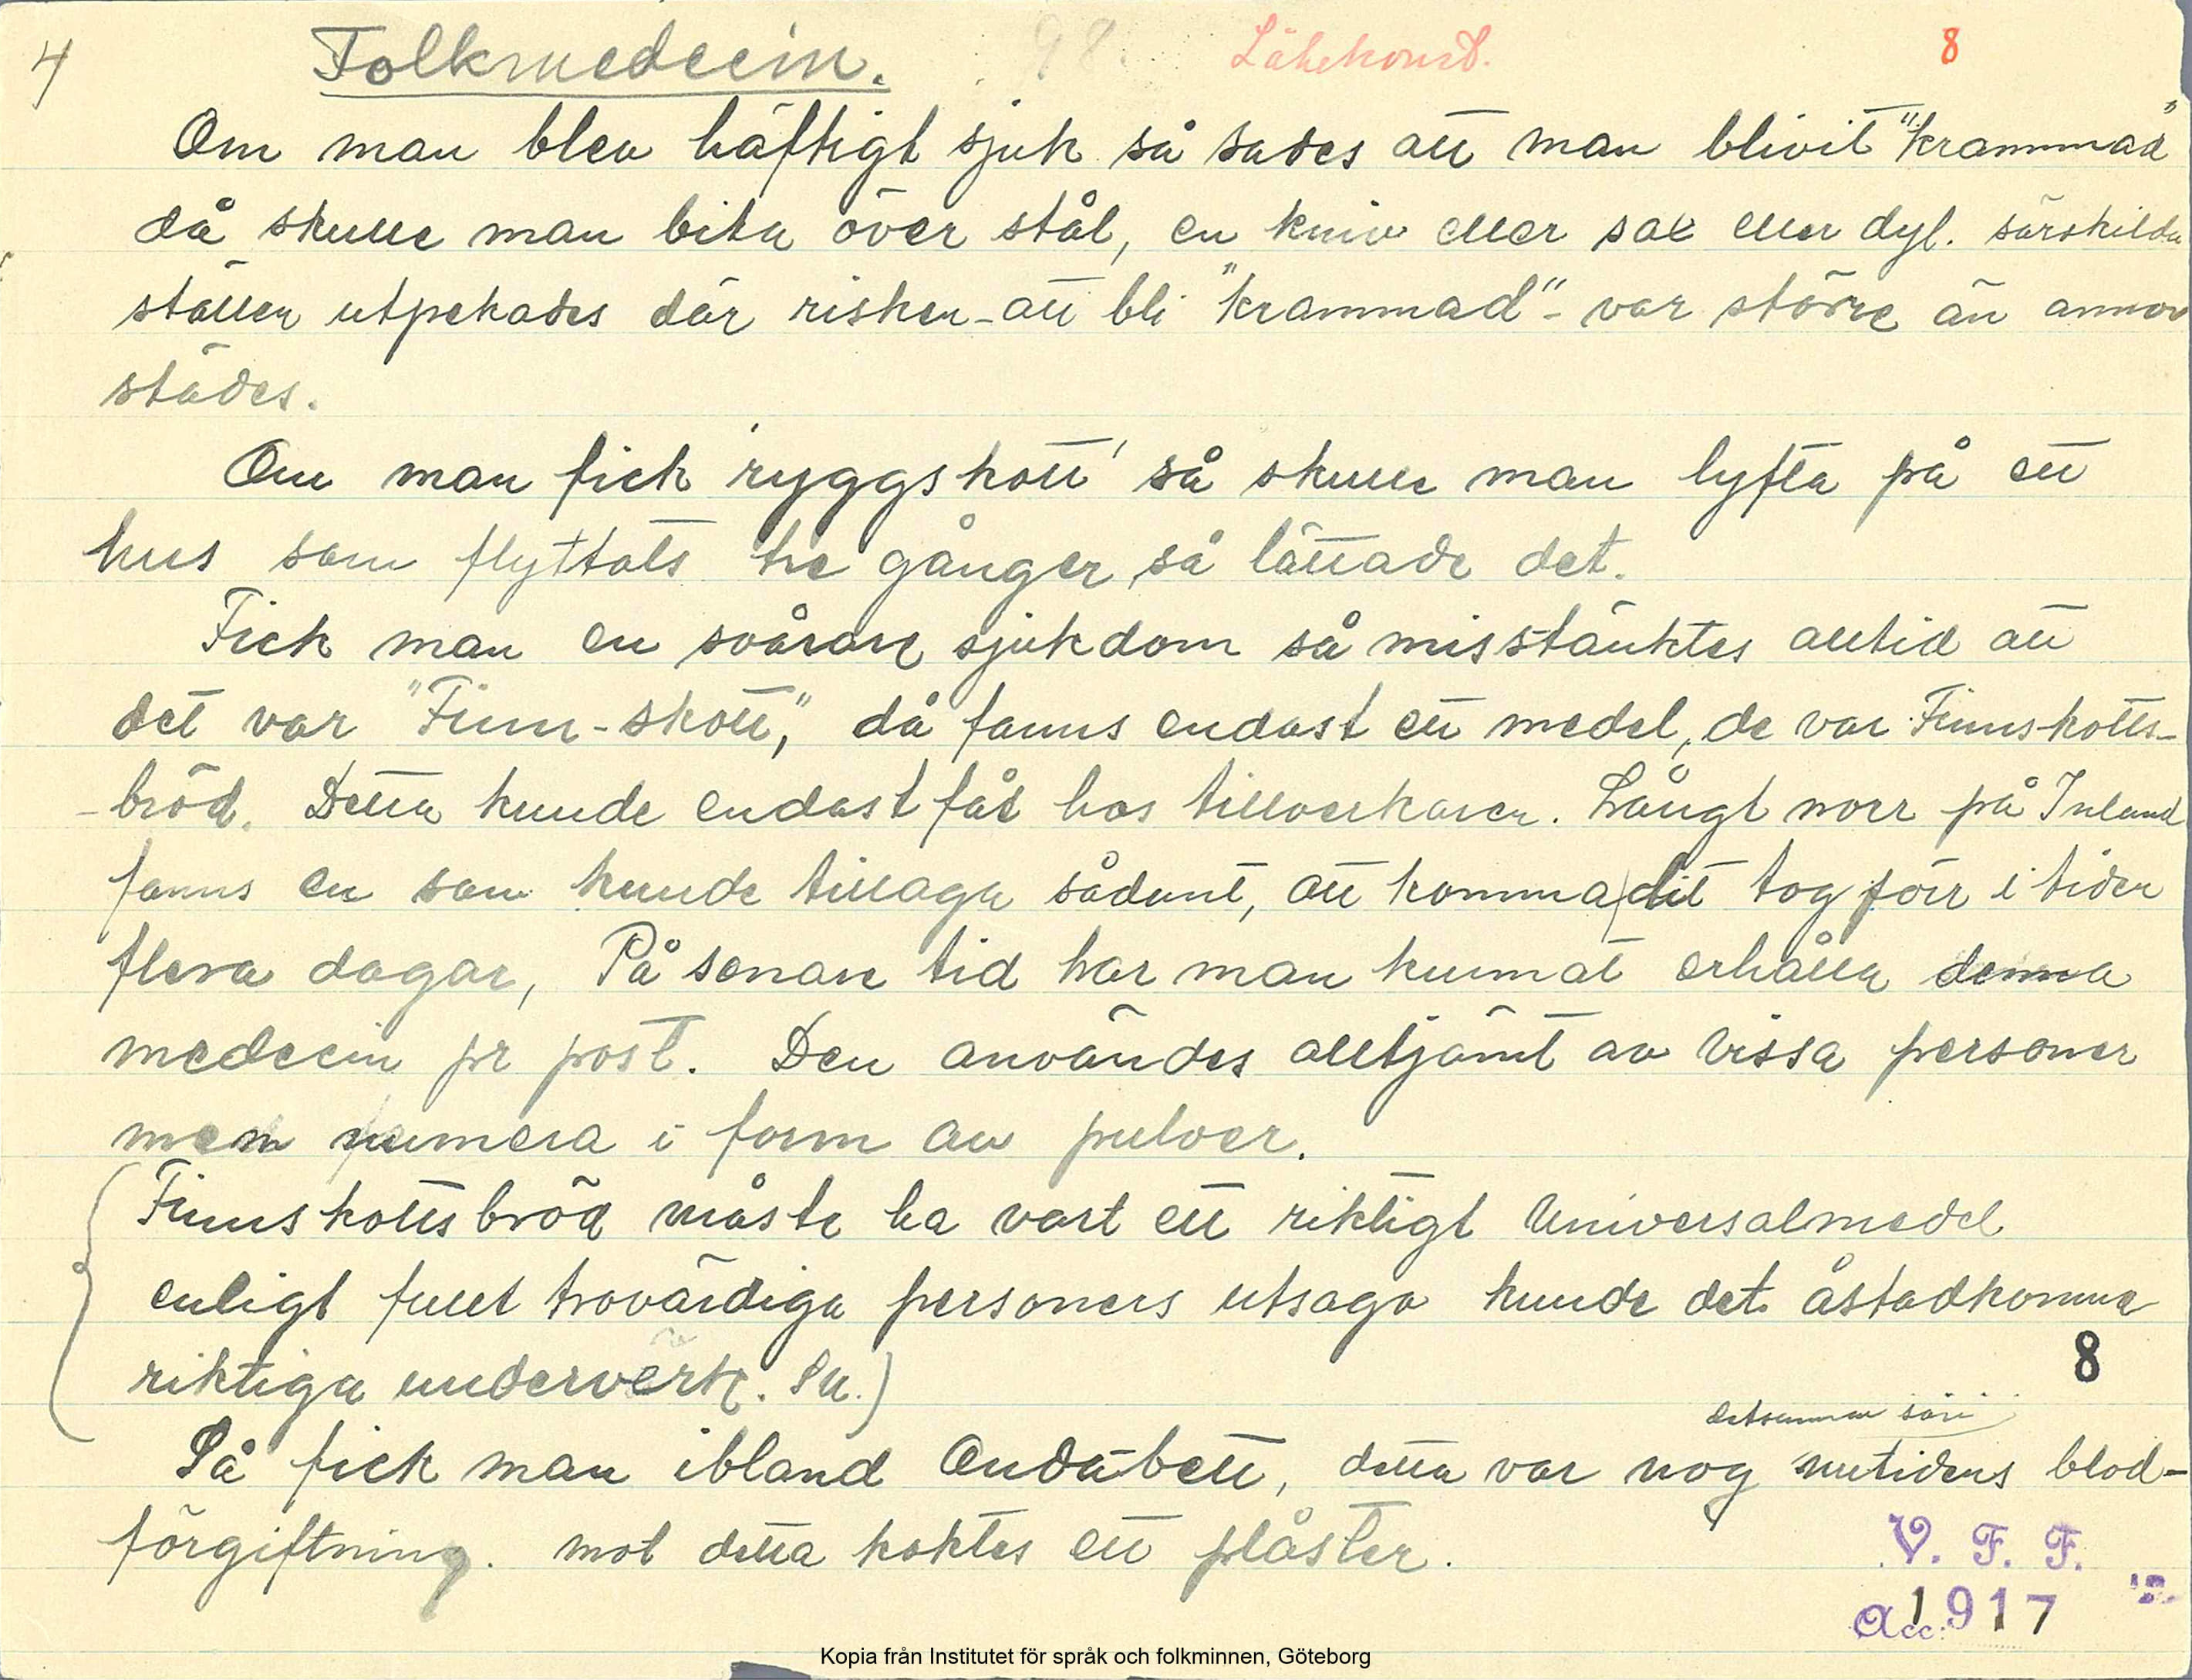 4 Folkmedecin. 98. Läkekonst. 8
Om man blev häftigt sjuk så sades att man blivit "krammad"
då skulle man bita över stål, en kniv eller sax eller dyl. särskilda
ställen utpekades där risken - att bli "krammad" - var större än annor
städes.
Om man fick 'ryggskott' så skulle man lyfta på ett
hus som flyttats tre gånger så lättade det.
Fick man en svårare sjukdom så misstänktes alltid att
det var "Finn-skott", då fanns endast ett medel, de var Finnskotts-
-bröd. Detta kunde endast fås hos tillverkaren. Långt norr på Inland
fanns en som kunde tillaga sådant, att komma dit tog förr i tiden
flera dagar, På senare tid har man kunnat erhålla denna
medecin pr post. Den användes alltjämt av vissa personer
men numera i form av pulver.
Finnskottsbröd måste ha vart ett riktigt Universalmedel
enligt fullt trovärdiga personers utsago kunde det åstadkomma
riktiga underverk.
8
detsamma som
Så fick man ibland Ondabett, detta var nog nutidens blod-
förgiftning. mot detta koktes ett plåster.
V. F. F.
Acc. 1917
Kopia från Institutet för språk och folkminnen, Göteborg